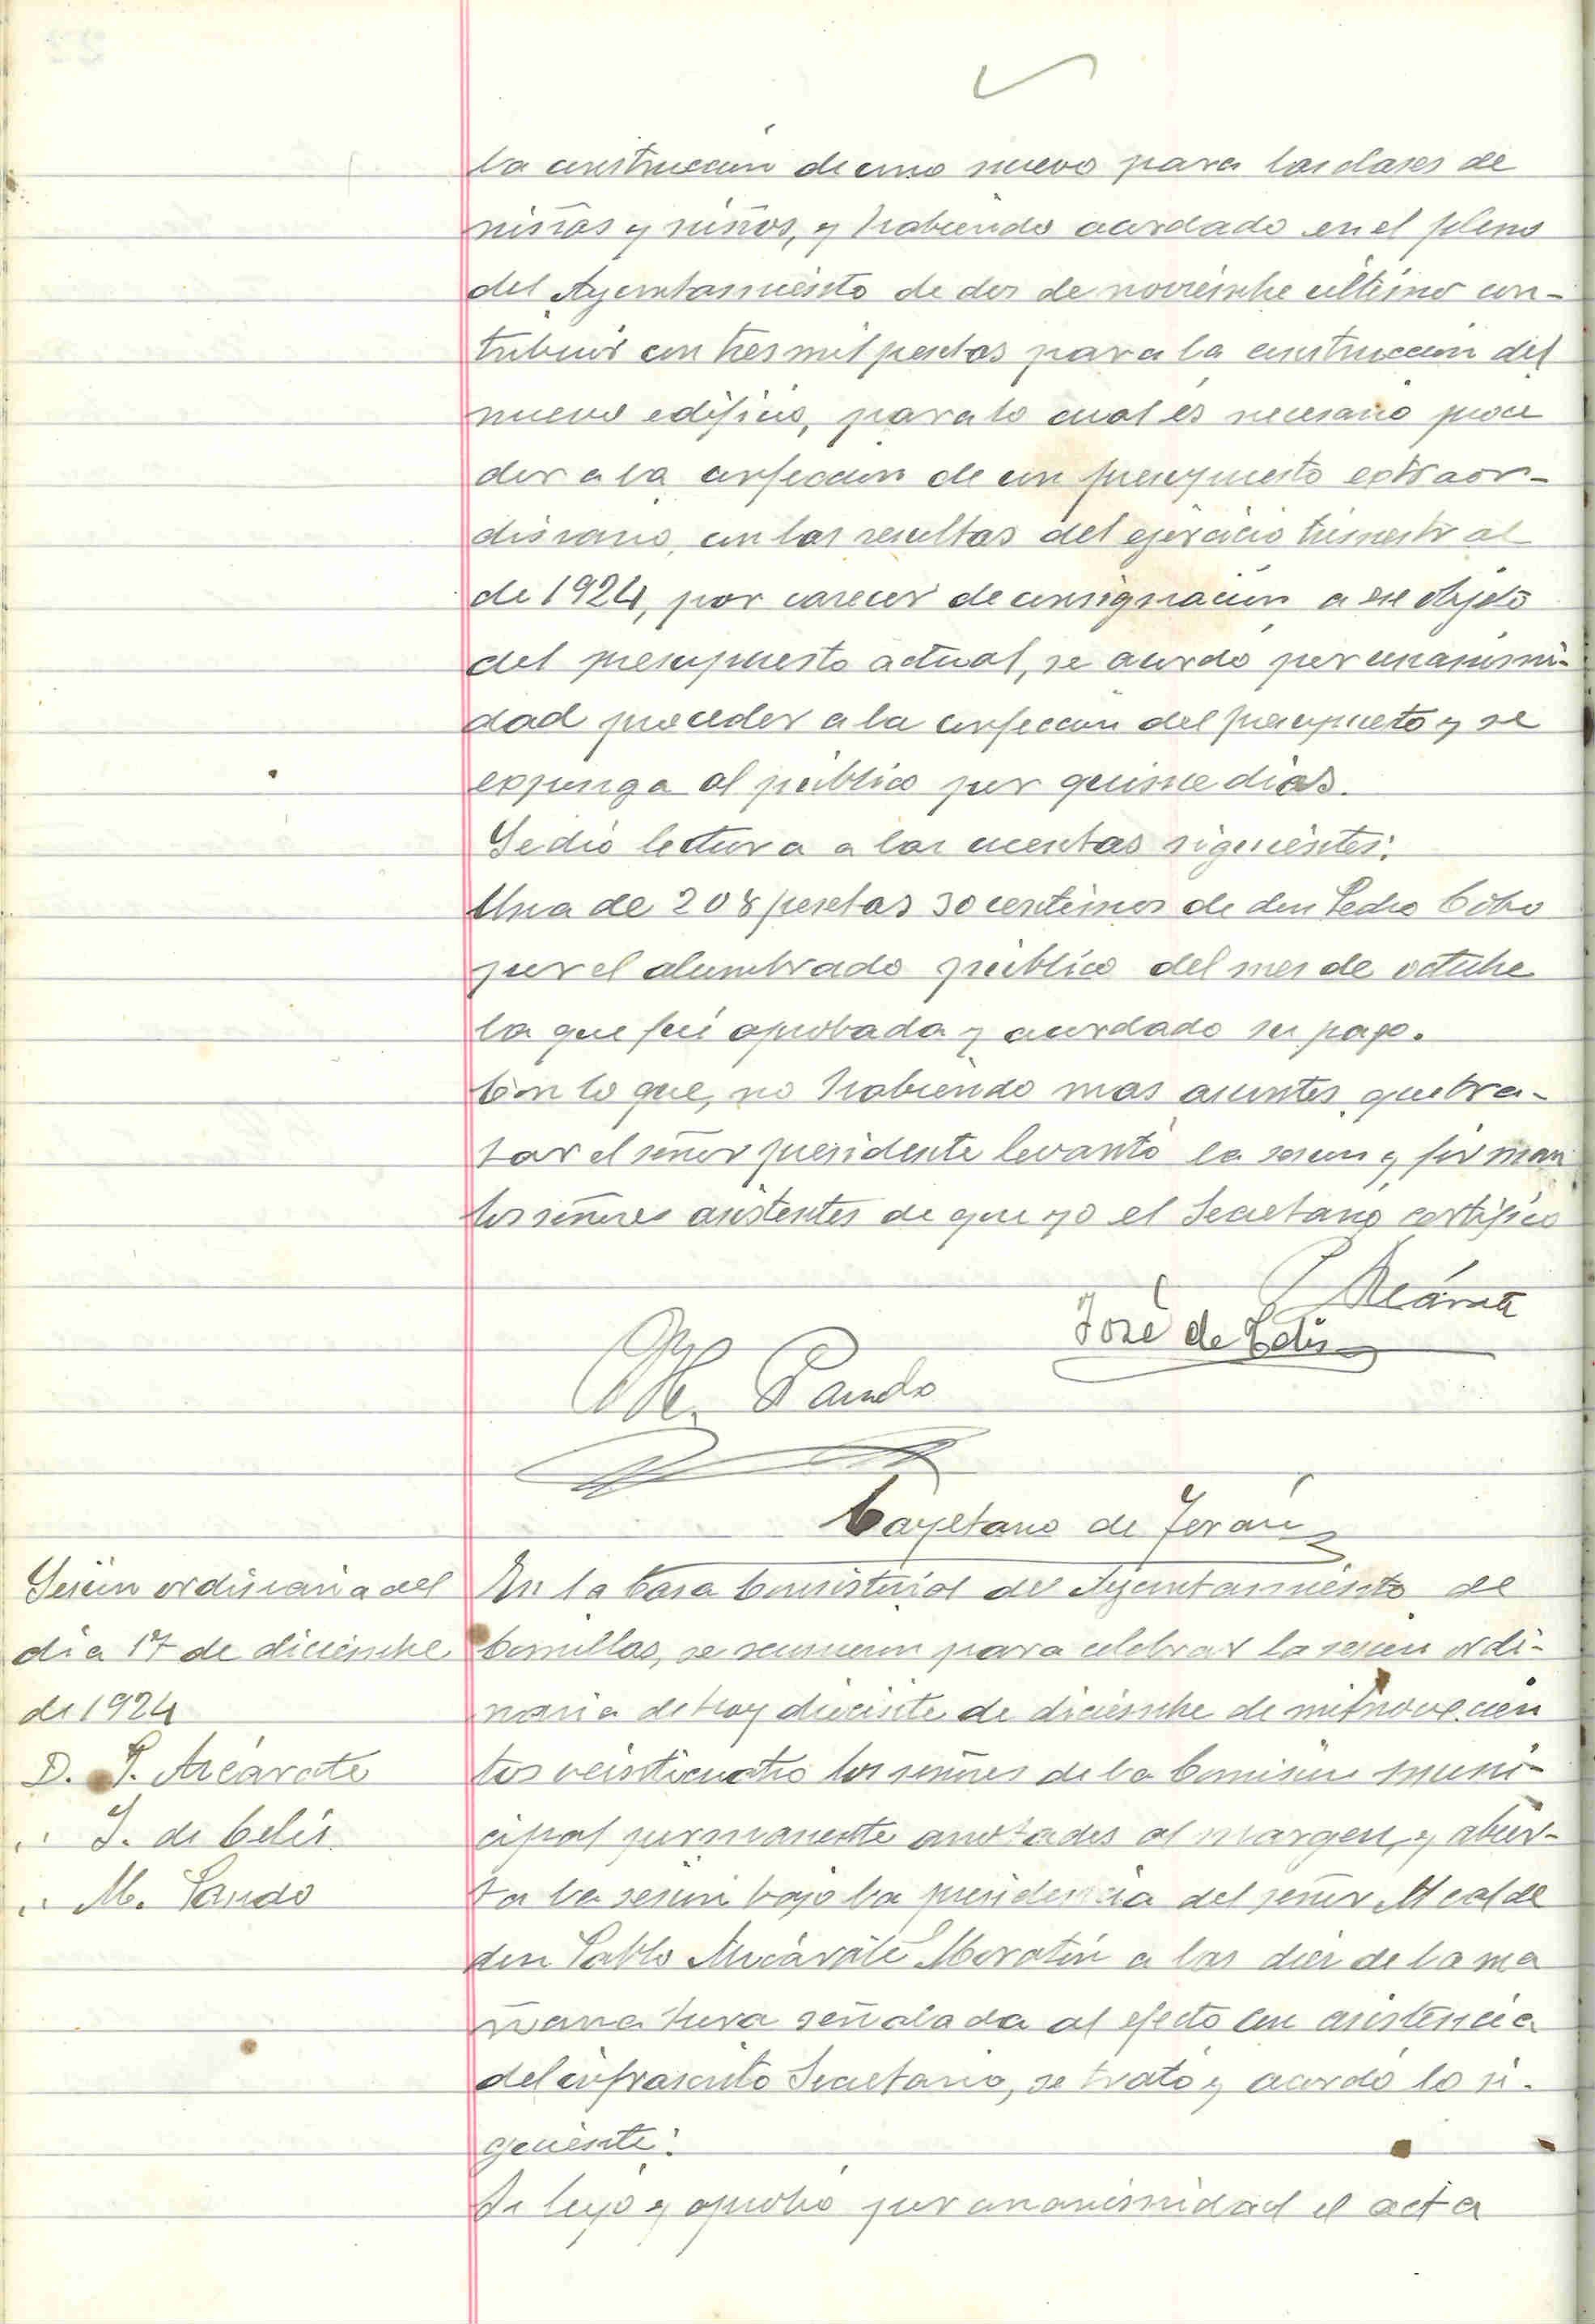 la construccion de uno nuevo para las clases de
niñas y niños, y habiendo acordado en el pleno
del Ayuntamiento de dos de noviembre último con-
tribuir con tres mil pesetas para la construccion del
nuevo edificio, para lo cual és necesario proce
der a la confeccion de un presupuesto extraor-
dinario, con las resultas del ejercicio trimestral
de 1924, por carecer de consignación a ese objeto
del presupuesto actual, se acordó por unanimi-
dad proceder a la confeccion del presupuesto y se
exponga al público por quince dias.
Se dió lectura a las cuentas siguientes:
Una de 208 pesetas 30 centimos de don Pedro Cobo
por el alumbrado público del mes de octubre
la que fué aprobada y acordado su pago.
Con lo que, no habiendo mas asuntos que tra-
tar el señor presidente levantó la sesion y firman
los señores asistentes de que yo el Secretario certifico
P. Azcárate
José de Celis
M. Pando
Cayetano de Terán
Sesión ordinaria del
dia 17 de diciembre
de 1924
D. P. Azcárate
" J. de Celis
" M. Pando
En la Casa Consistorial del Ayuntamiento de
Comillas, se reunieron para celebrar la sesion ordi-
naria de hoy diecisiete de diciembre de mil novecien
tos veinticuatro los señores de la Comision muni-
cipal permanente anotados al margen, y abier-
ta la sesion bajo la presidencia del señor Alcalde
don Pablo Azcárate Moratin a las diez de la ma
ñana hora señalada al efecto con asistencia
del infrascrito Secretario, se trató y acordó lo si-
guiente:
Se leyó y aprobó por unanimidad el acta